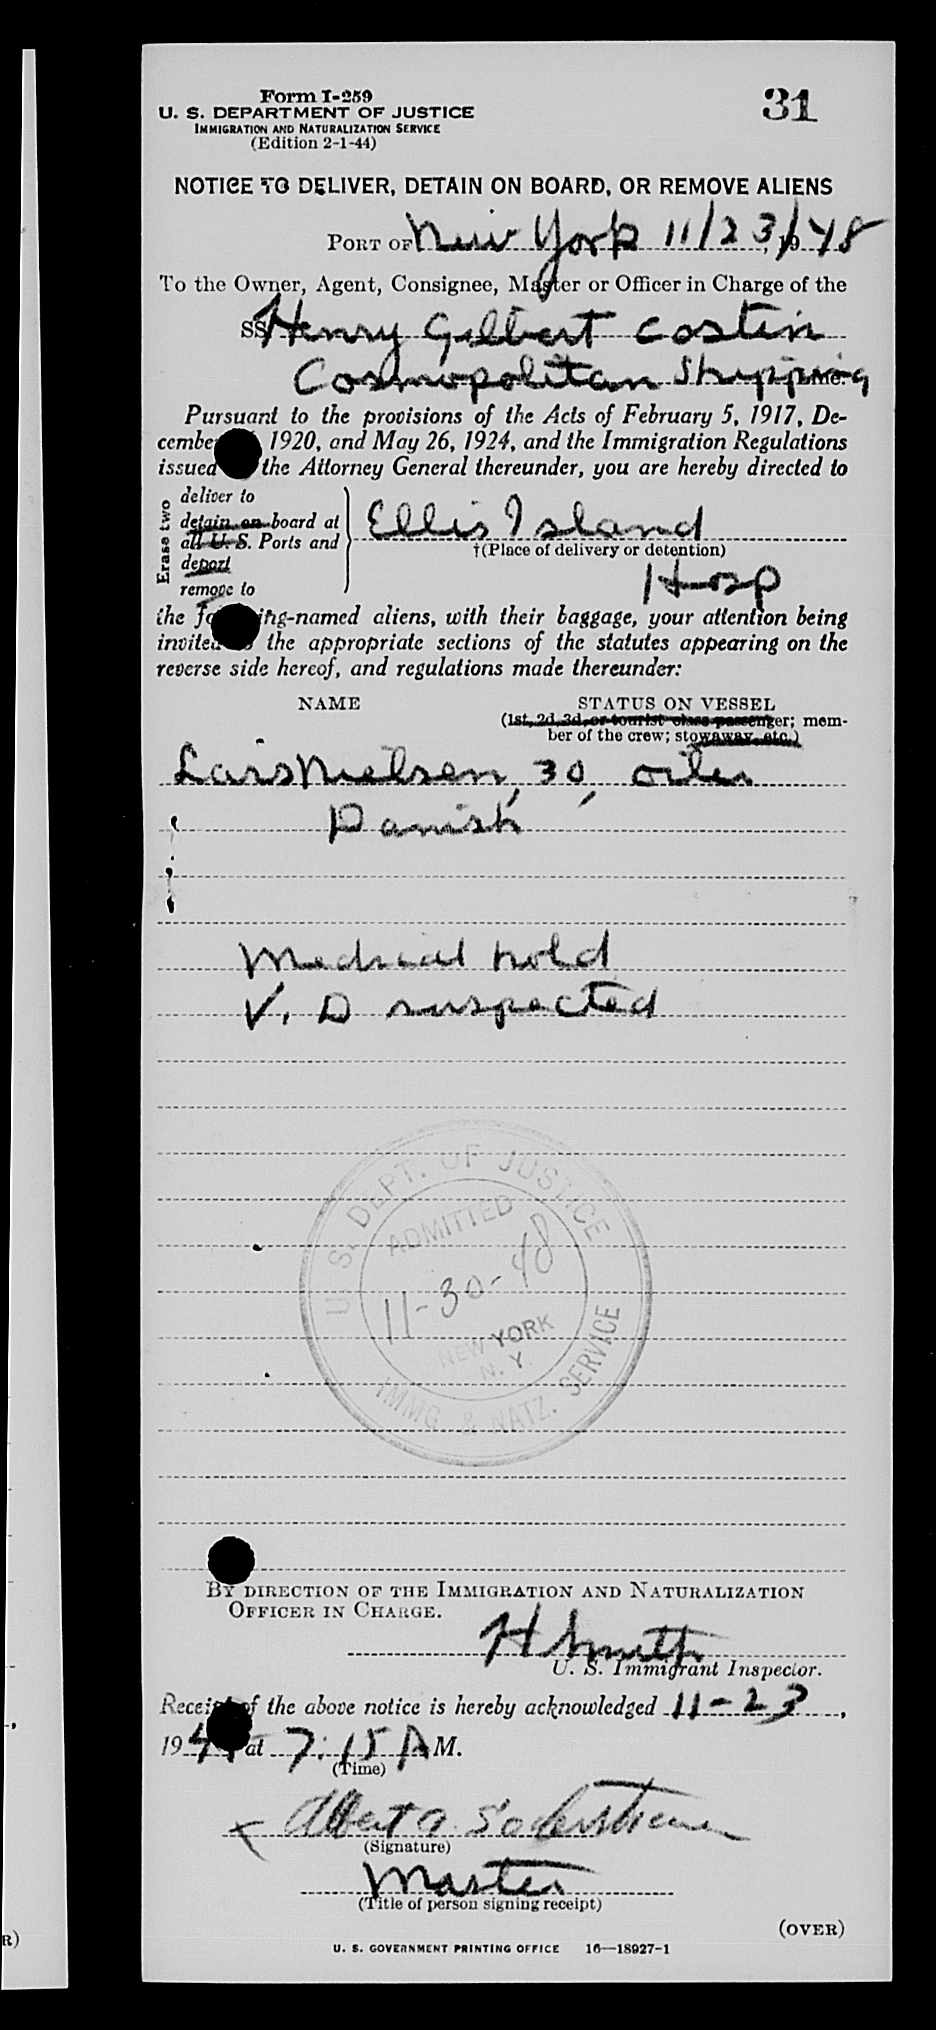 Form I-259
31
U. S. DEPARTMENT OF JUSTICE
IMMIGRATION AND NATURALIZATION SERVICE
(Edition 2-1-44)
NOTICE TO DELIVER, DETAIN ON BOARD, OR REMOVE ALIENS
PORT OF New York 11/23/, 1948
To the Owner, Agent, Consignee, Master or Officer in Charge of the
SS Henry Gilbert Costin
Cosmopolitan Shipping Line.
Pursuant to the provisions of the Acts of February 5, 1917, De-
cember 1920, and May 26, 1924, and the Immigration Regulations
issued the Attorney General thereunder, you are hereby directed to
Erase two
deliver to
detain on board at
all U. S. Ports and
deport
remove to
Ellis Island
†(Place of delivery or detention)
Hosp
the following-named aliens, with their baggage, your attention being
invited to the appropriate sections of the statutes appearing on the
reverse side hereof, and regulations made thereunder:
NAME STATUS ON VESSEL
(1st, 2d, 3d, or tourist class passenger; mem-
ber of the crew; stowaway, etc.)
Lars Nielsen, 30, oiler
Danish
Medical hold
V. D suspected
U. S. DEPT. OF JUSTICE
ADMITTED
11-30-48
NEW YORK
N. Y.
IMMG. & NATZ. SERVICE
BY DIRECTION OF THE IMMIGRATION AND NATURALIZATION
OFFICER IN CHARGE.
H Smith
U. S. Immigrant Inspector.
Receipt of the above notice is hereby acknowledged 11-23,
194 at 7:15 P M.
(Time)
Albert A.
(Signature)
Master
(Title of person signing receipt)
(OVER)
U. S. GOVERNMENT PRINTING OFFICE 16—18927-1
R)